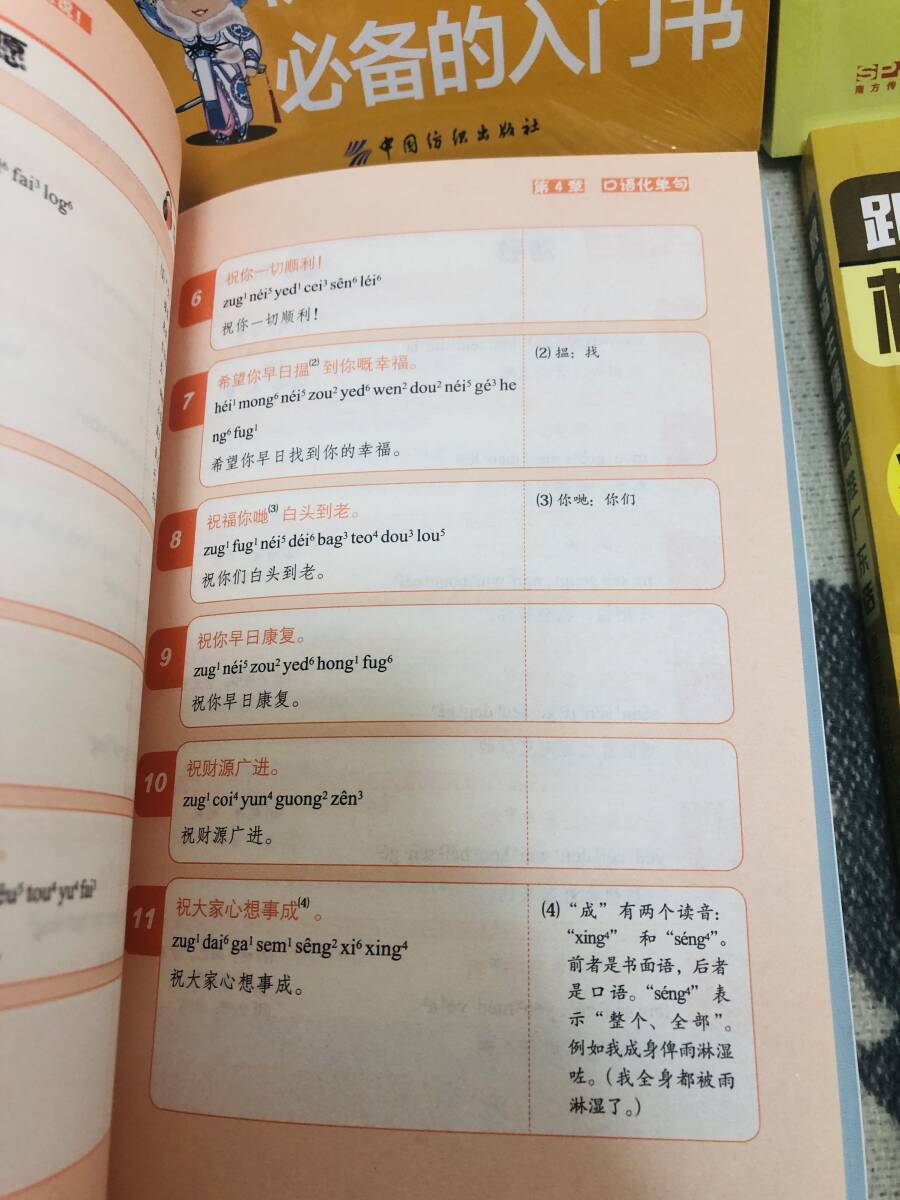 必备的入门书
中国纺织出版社
愿
fai³ log⁶
tou⁴ yu⁴ fai³
第4章 口语化单句
6
祝你一切顺利！
zug¹ néi⁵ yed¹ cei³ sên⁶ léi⁶
祝你一切顺利！
7
希望你早日揾⁽²⁾到你嘅幸福。
héi¹ mong⁶ néi⁵ zou² yed⁶ wen² dou² néi⁵ gé³ he
ng⁶ fug¹
希望你早日找到你的幸福。
(2) 揾：找
8
祝福你哋⁽³⁾白头到老。
zug¹ fug¹ néi⁵ déi⁶ bag³ teo⁴ dou³ lou⁵
祝你们白头到老。
(3) 你哋：你们
9
祝你早日康复。
zug¹ néi⁵ zou² yed⁶ hong¹ fug⁶
祝你早日康复。
10
祝财源广进。
zug¹ coi⁴ yun⁴ guong² zên³
祝财源广进。
11
祝大家心想事成⁽⁴⁾。
zug¹ dai⁶ ga¹ sem¹ sêng² xi⁶ xing⁴
祝大家心想事成。
(4) “成”有两个读音：
“xing⁴” 和“séng⁴”。
前者是书面语，后者
是口语。“séng⁴” 表
示“整个、全部”。
例如我成身俾雨淋湿
咗。（我全身都被雨
淋湿了。）